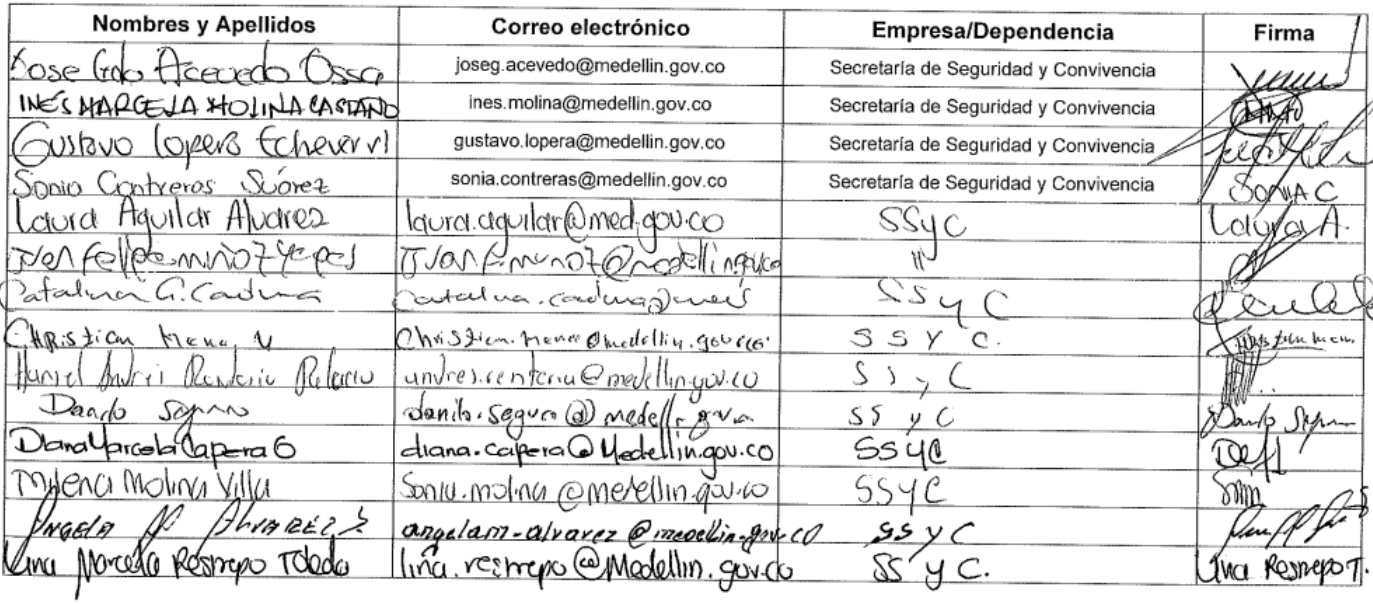 Nombres y Apellidos Correo electrónico Empresa/Dependencia Firma
Jose Gdo Acevedo Ossa joseg.acevedo@medellin.gov.co Secretaría de Seguridad y Convivencia
INÉS MARCELA MOLINA CASTAÑO ines.molina@medellin.gov.co Secretaría de Seguridad y Convivencia
Gustavo Lopera Echeverri gustavo.lopera@medellin.gov.co Secretaría de Seguridad y Convivencia
Sonia Contreras Suárez sonia.contreras@medellin.gov.co Secretaría de Seguridad y Convivencia SONIA C
Laura Aguilar Alvarez laura.aguilar@med.gov.co SSyC Laura A.
Juan Felipe muñoz Yepes "
Catalina G. Cadma SSyC
Christian Mena christian.mena@medellin.gov.co. SSYC.
Andrés Rentería Palacio andres.renteria@medellin.gov.co SSyC
Danilo Segura danilo.segura@ SSyC Danilo Segura
Diana Marcela Capera G diana.capera@Medellin.gov.co SSYC
Milena Molina Villa Sonia.molina@medellin.gov.co SSYC
ANGELA ALVAREZ angelam.alvarez@medellin.gov.co SSyC
Lina Marcela Restrepo Toledo lina.restrepo@Medellin.gov.co SSyC. Lina Restrepo T.